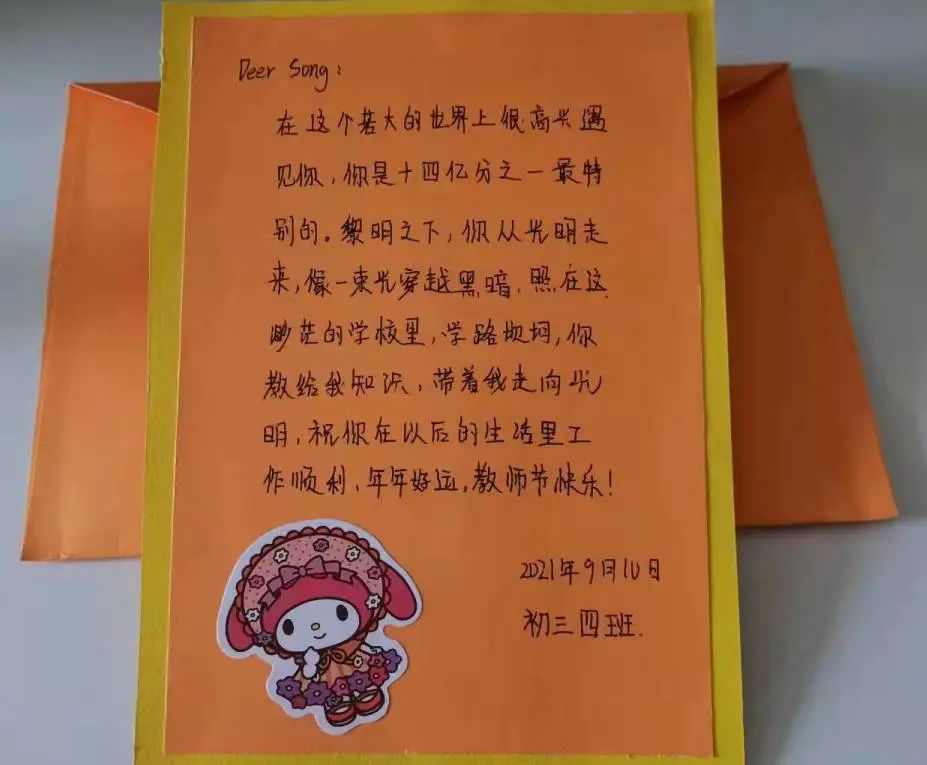 Deer Song：
在这个若大的世界上很高兴遇
见你，你是十四亿分之一最特
别的。黎明之下，你从光明走
来，像一束光穿越黑暗，照在这
渺茫的学校里，学路坎坷，你
教给我知识，带着我走向光
明，祝你在以后的生活里工
作顺利，年年好运，教师节快乐！
2021年9月10日
初三四班.